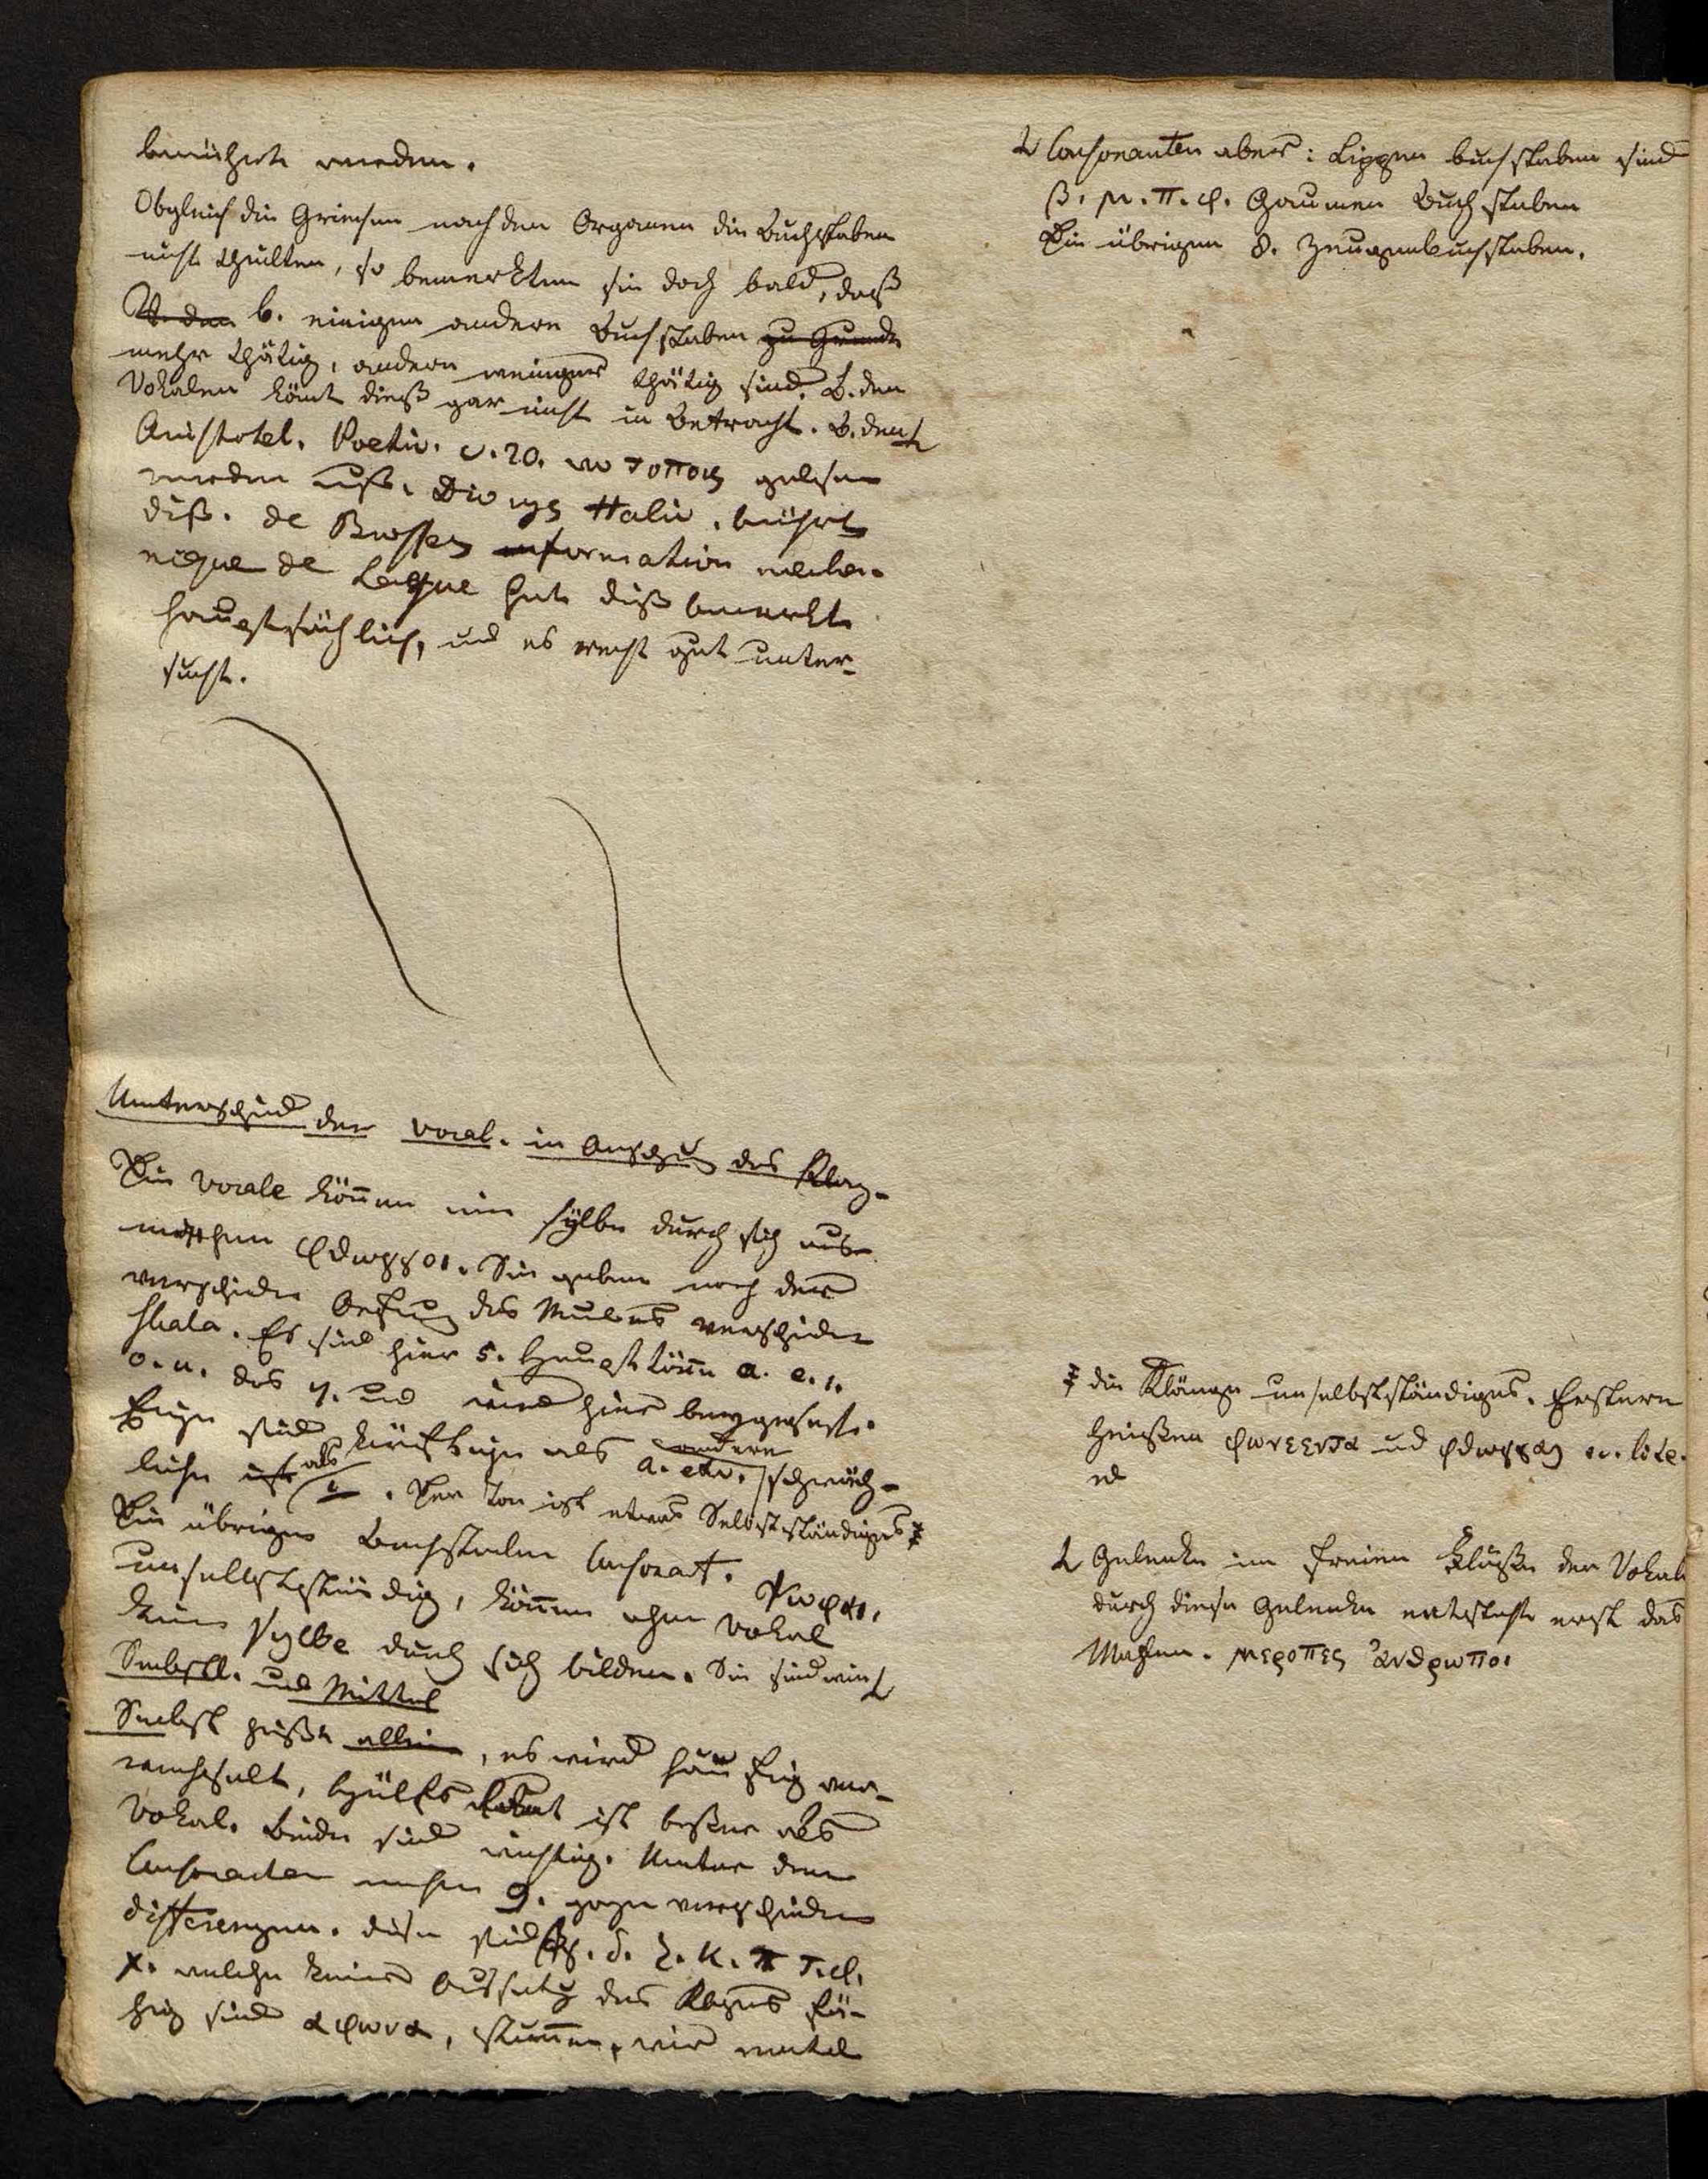 berührt werden.
Obgleich die Griechen nach den Organen die Buchstaben
nicht theilten, so bemerkten sie doch bald, daß
b. einigen andere Buchstaben zu Grunde
mehr thätig, andern weniger thätig sind. B. den
Vokalen kömt dieß gar nicht in Betracht. B. den
Aristotel. Poetic. c. 20. wo τοποις gelesen
werden muß. Dionys Halic. berührt
diß. de Brosses formation mecha-
nique de Langue hat diß bemerkt
hauptsächlich, und es recht gut unter-
sucht.
Unterschied der vocal. in Ansehung des Klang-
Die Vocale können eine Sylbe durch sich aus-
machen φθογγοι. Sie geben nach der
verschiedn Oefnung des Mundes verschiedne
Skala. Es sind hier 5. Haupttöne a. e. i.
o. u. das y. und wird hier beygesezt.
Einige sind kräftiger als andere
a. etc. schwäch-
liche als i. Der Ton ist etwas Selbstständiges
Die übrigen Buchstaben Consonant.
unselbstständig, können ohne Vokal
keine Sylbe durch sich bilden. Sie sind wie
Selbstl. und Mittel
Selbst heißt allein, es wird häufig ver-
wechselt, Hülfs ist besser als
Vokal. Beide sind richtig. Unter den
Consonanten machen 9. ganz verschiedne
differenzen. diese sind β. γ. δ. ζ. κ. π τ. φ.
χ. welche keines Aussatz des Klangs fä-
hig sind αφωνα, stumme, wie mutae
Consonanten aber: Lippen buchstaben sind
β. μ. π. φ. Gaumen Buchstaben
Die übrigen 8. Zungenbuchstaben.
die Klänge unselbstständiges. Erstere
heißen φωνεεντα und
Gelenke im freien Fluße der Vokale
durch diese Gelenke entsteht erst das
μεροπες ἀνθρωποι